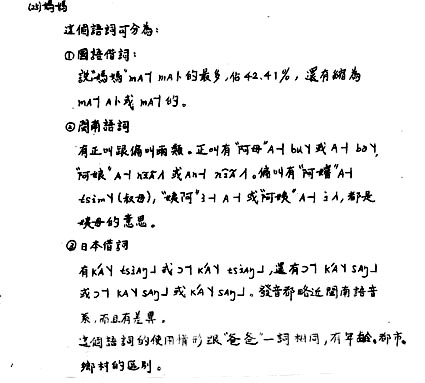 (23)媽媽
這個語詞可分為:
①國語借詞:
說"媽媽"mA˥ mA˫的最多,佔42.41%,還有縮為
mA˥ A˫或mA˥的。
②閩南語詞
有正叫跟偏叫兩類。正叫有"阿母"A˧ buY或A˧ bɔY,
"阿娘"A˧ 或An˧ 。偏叫有"阿嬸"A˧
tsimY(叔母),"姨阿"i˧ A˧或"阿姨"A˧ iʌ,都是
姨母的意思。
③日本借詞
有KAY tsiAŋ˩或ɔ˥ KAY tsiAŋ˩,還有ɔ˥ KAY sAŋ˩
或ɔ˥ KAY sAŋ˩或KAY sAŋ˩。發音都略近閩南語音
系,而且有差異。
這個語詞的使用情形跟"爸爸"一詞相同,有年齡、都市、
鄉村的區別。